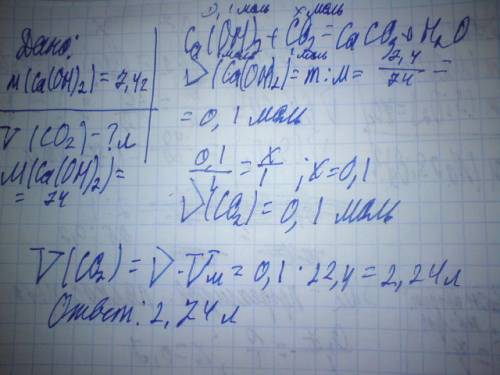 Дано:
m(Ca(OH)2)=7,4г
V(CO2)-?л
M(Ca(OH)2)=
=74
0,1 моль x моль
Ca(OH)2 + CO2 = CaCO3 + H2O
1 моль 1 моль
ν(Ca(OH)2)=m:M= 7,4/74 =
=0,1 моль
0,1/1 = x/1 ; x=0,1
ν(CO2)=0,1 моль
V(CO2)=ν·Vм=0,1·22,4=2,24л
Ответ: 2,24л